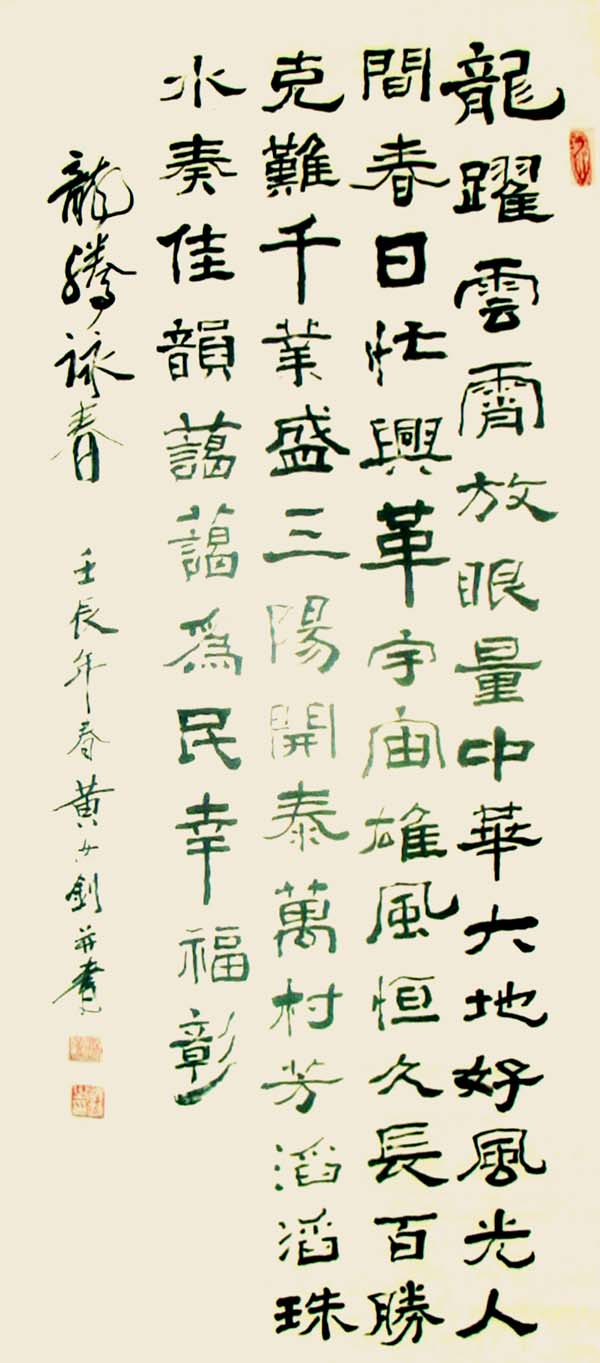 龍躍雲霄放眼量中華大地好風光人
間春日忙興革宇宙雄風恒久長百勝
克難千業盛三陽開泰萬村芳滔滔珠
水奏佳韻藹藹為民幸福彰
龍騰詠春
壬辰年春黃少釗并書